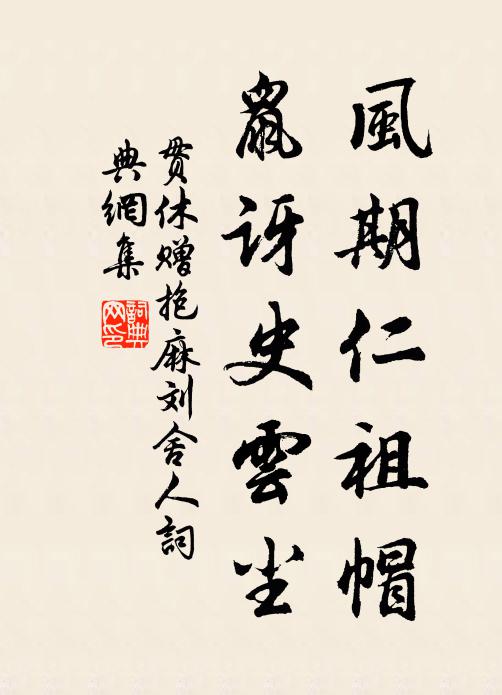 風期仁祖帽
鼠訝史雲尘
贯休赠抱麻刘舍人詞
典網集
詞典
网印